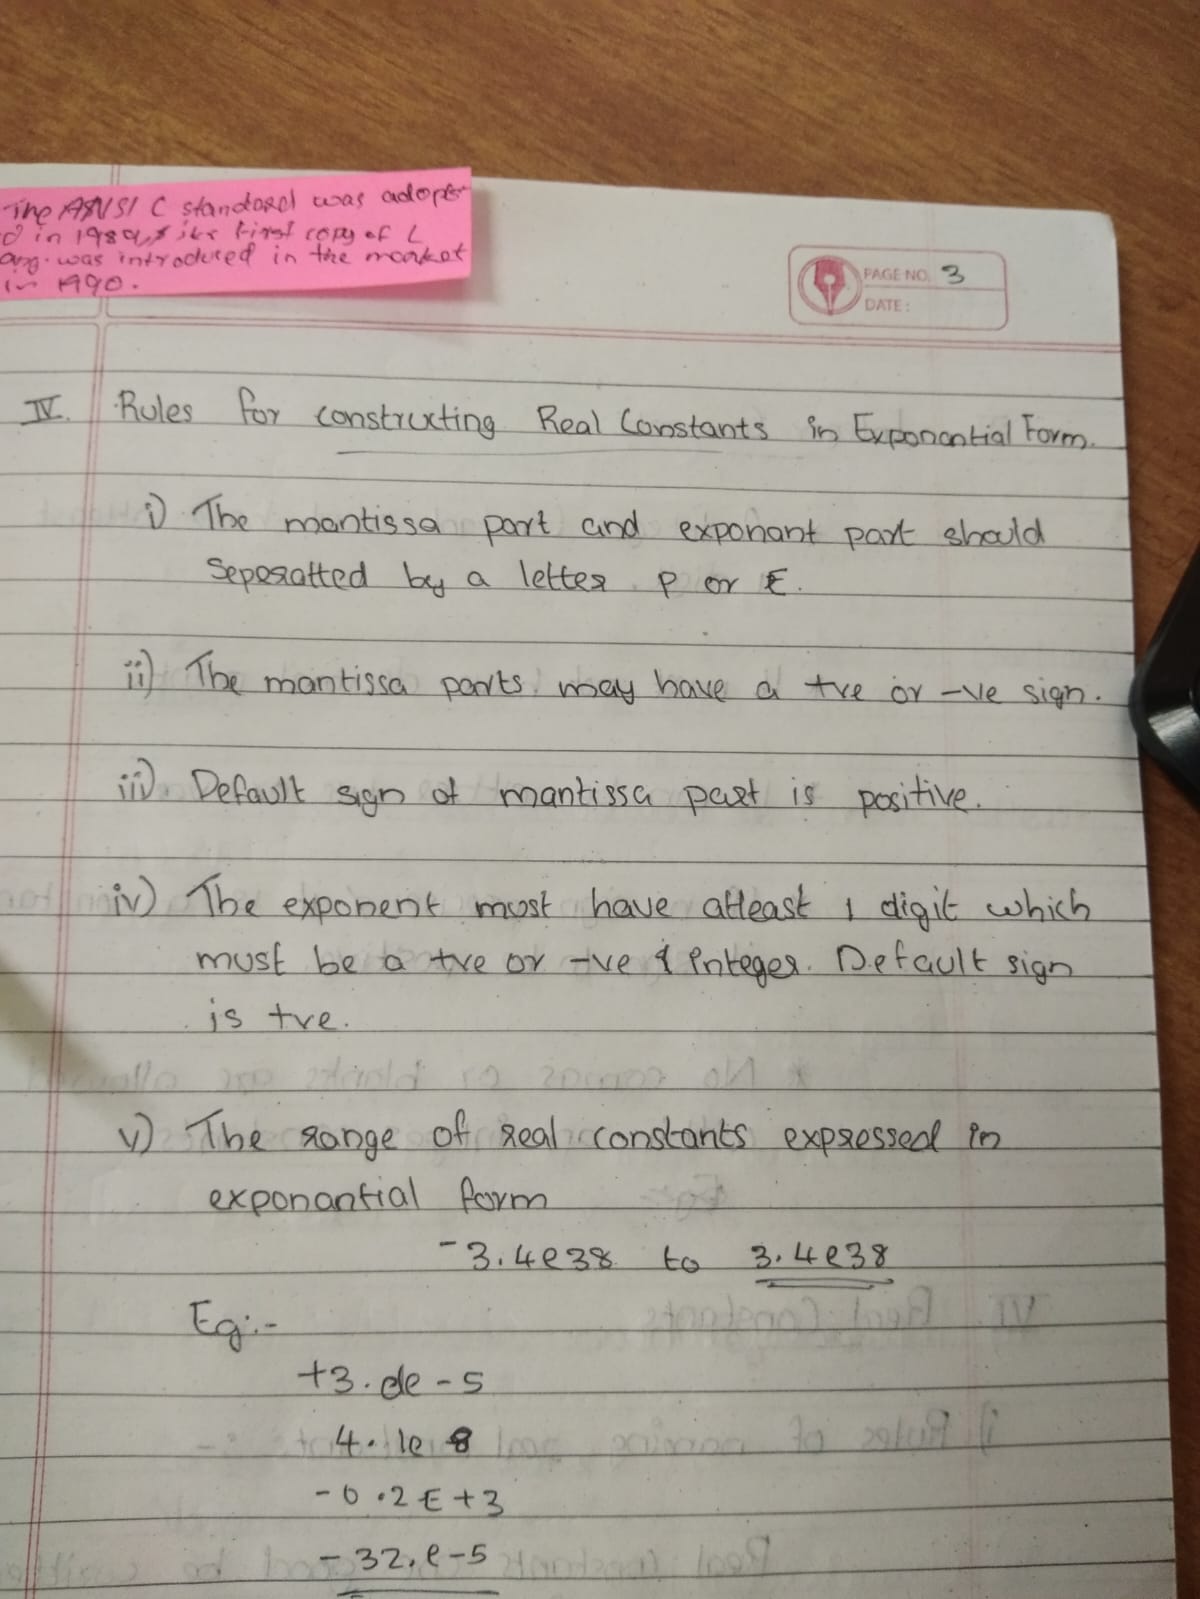 The ANSI C standard was adopte
d in 1989, & its first copy of C
ang. was introduced in the market
in 1990.
PAGE NO. 3
DATE:
IV. Rules for constructing Real Constants in Exponential Form.
i) The mantissa part and exponant part should
Seperatted by a letter P or E.
ii) The mantissa parts may have a +ve or -ve sign.
iii) Default sign of mantissa part is positive.
iv) The exponent must have atleast 1 digit which
must be a +ve or -ve integer. Default sign
is +ve.
v) The range of real constants expressed in
exponantial form
-3.4e38 to 3.4e38
Eg:-
+3. e-5
4.1e 8
-0.2E+3
-32.e-5